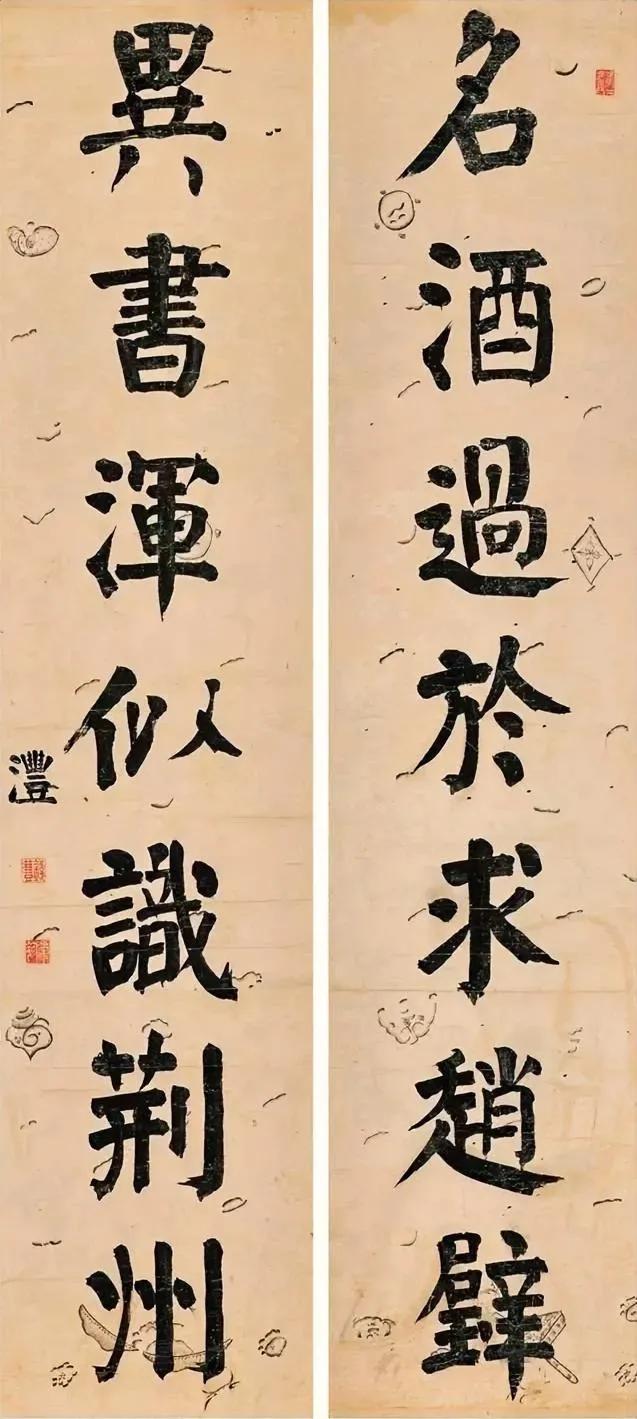 名酒過於求趙璧
異書渾似識荆州
灃